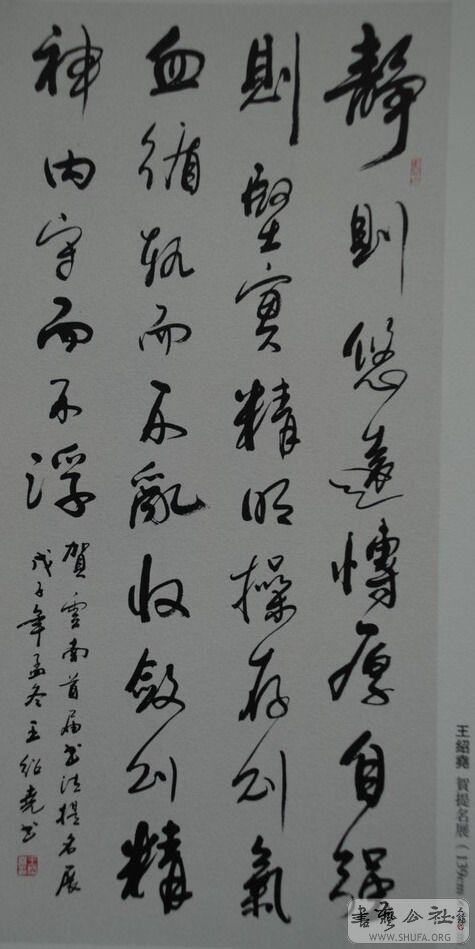 靜則悠遠博厚自強
則堅實精明操存則氣
血循軌而不亂收斂則精
神内守而不浮
賀雲南首届书法提名展
戊子年孟冬王绍尧书
王紹堯 賀提名展（139cm
書藝公社
WWW.SHUFA.ORG